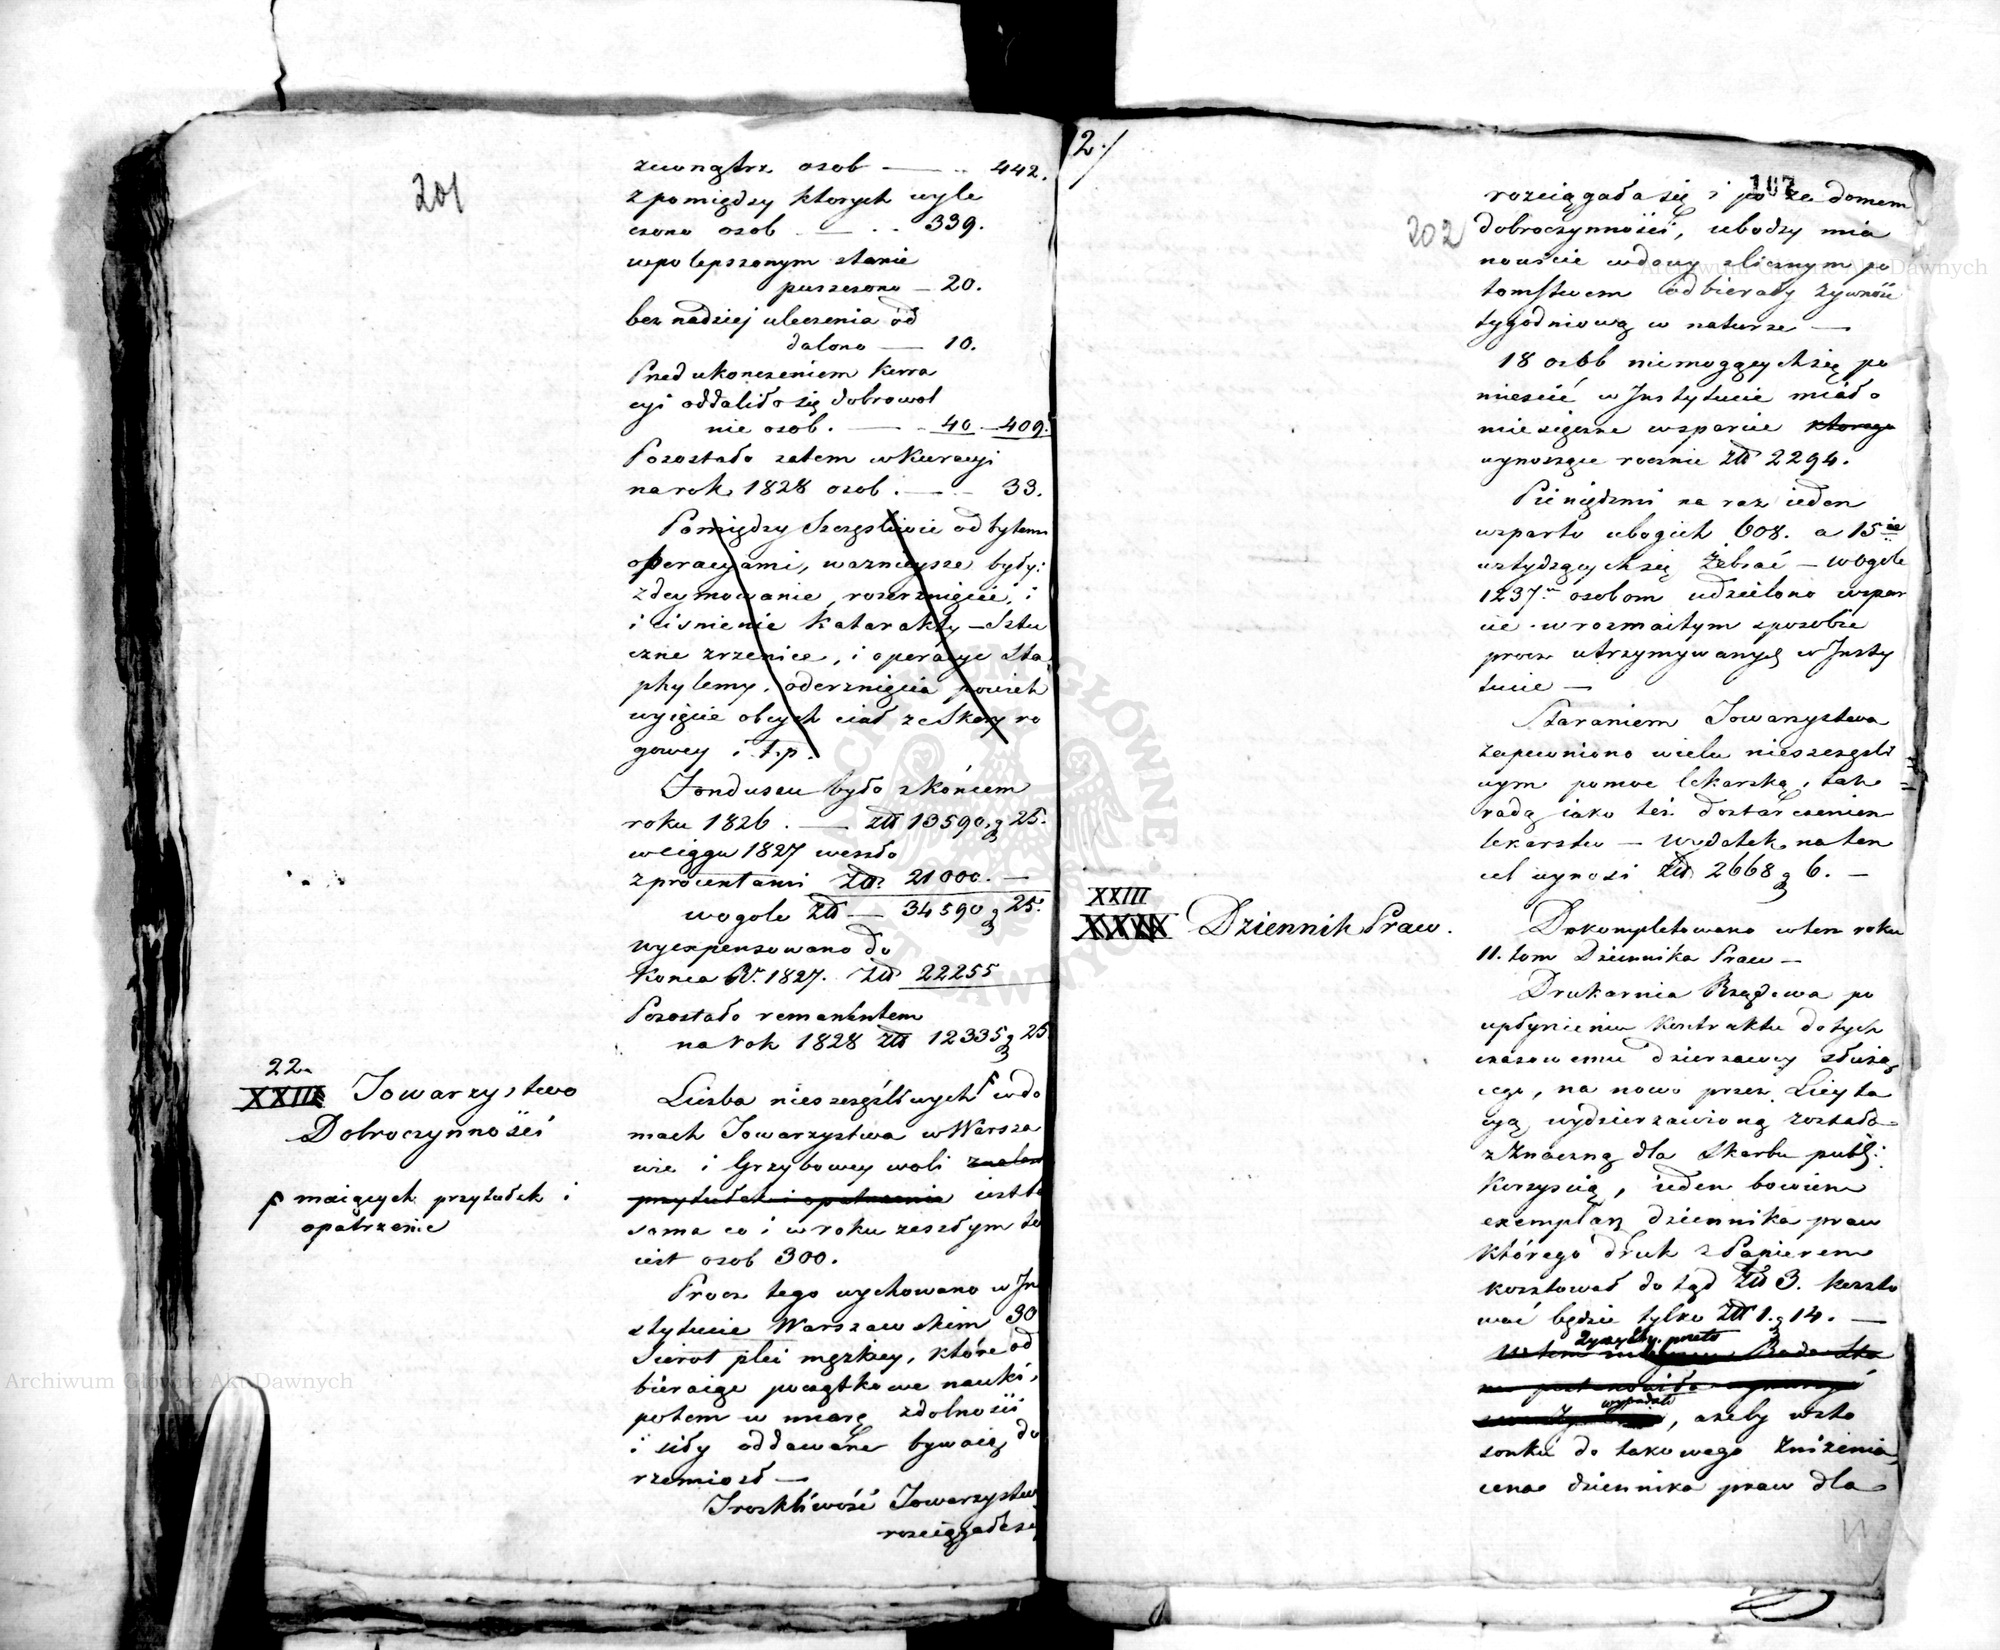 201
zewnątrz osob — .. 442.
z pomiędzy ktorych wyle
czono osob — .. 339.
w polepszonym stanie
puszczono — 20.
bez nadziej uleczenia od
dalono — 10.
Przed ukonczeniem kura
cyi oddaliło się dobrowol
nie osob. — 40 — 409.
Pozostało zatem w Kuracyi
na rok 1828 osob . — 33.
Pomiędzy szczęsliwie odbytemi
operacyami, waznieysze były:
zdeymowanie, rozerznięcie, i
i cisnienie katarakty — sztu
czne zrzenice, i operacye sta
phylemy. oderznięcia powiek
wyięcie obcych ciał ze skory ro
gowey i t.p.
Funduszu było z końcem
roku 1826 . — Złt 13590. g 25.
w ciągu 1827 weszło
z procentami Złt 21000. —
wogole Złt — 34590 g 25.
wyexpensowano do
konca R. 1827. Złt 22255
Pozostało remanentem
na rok 1828 Złt 12335 g 25
22.
XXIII Towarzystwo
Dobroczynności
Liczba nieszczęśliwych F w do
mach Towarzystwa w Warsza
wie i Grzybowey woli
przytułek i opatrzenie iest ta
sama co i w roku zeszłym to
iest osob 300.
F maiących przytułek i
opatrzenie
Procz tego wychowano w In
stytucie Warszawskim 30
sierot płci męzkiey, które od
bieraiąc początkowe nauki,
potem w miarę zdolności
i siły oddawane bywaią do
rzemiosł —
Troskliwość Towarzystw
rozciągała się
2./
107
202
rozciągała się i po za domem
dobroczynności, ubodzy mia
nowicie wdowy z licznym po
tomstwem odbierały żywność
tygodniową w naturze —
18 osób niemogących się po
mieścić w Instytucie miało
miesięczne wsparcie ktorego
wynoszące rocznie Złt 2294.
Pieniędzmi na raz ieden
wsparto ubogich 608. a 15
wstydzących się żebrać — wogole
1237 osobom udzielono wspar
cie w rozmaitym sposobie
procz utrzymywanych w Insty
tucie —
Staraniem Towarzystwa
zapewniono wielu nieszczęśli
wym pomoc lekarską, tak
radą iako też dostarczeniem
lekarstw — wydatek na ten
cel wynosi Złt 2668 g 6. —
XXIII
Dziennik Praw.
Dokompletowano w ten roku
11. tom Dziennika Praw —
Drukarnia Rządowa po
upłynieniu kontraktu dotych
czasowemu dzierzawcy służą
cego, na nowo przez Licyta
cyą wydzierzawioną została
z znaczną dla skarbu publ:
korzyscią, ieden bowiem
exemplarz dziennika praw
którego druk z Papierem
kosztował do tąd Złt 3. koszto
wać będzie tylko Złt 1. g 14. —
wypadało
, azeby w sto
sunku do takowego zniżenia
cena dziennika praw dla